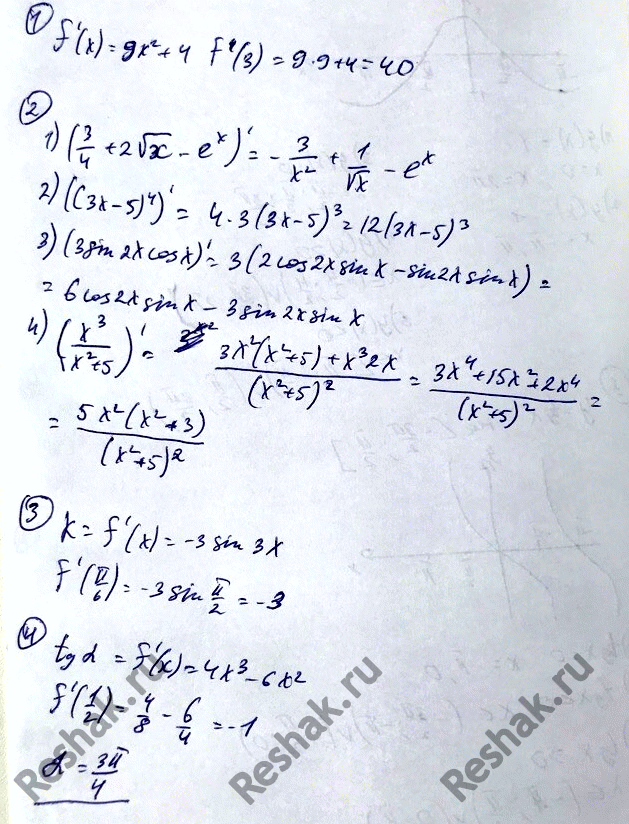 1 f'(x) = 9x² + 4 f'(3) = 9·9+4 = 40
2
1) (3/4 + 2√x − eˣ)' = −3/x² + 1/√x − eˣ
2) ((3x−5)⁴)' = 4·3(3x−5)³ = 12(3x−5)³
3) (3sin 2x cos x)' = 3(2cos2x sin x − sin2x sin x) =
= 6cos2x sin x − 3sin2x sin x
4) (x³/(x²+5))' = (3x²(x²+5) + x³2x)/(x²+5)² = (3x⁴+15x²+2x⁴)/(x²+5)² =
= 5x²(x²+3)/(x²+5)²
3 k = f'(x) = −3 sin 3x
f'(π/6) = −3 sin π/2 = −3
4 tg α = f'(x) = 4x³ − 6x²
f'(1/2) = 4/8 − 6/4 = −1
α = 3π/4
Reshak.ru
Reshak.ru
Reshak.ru